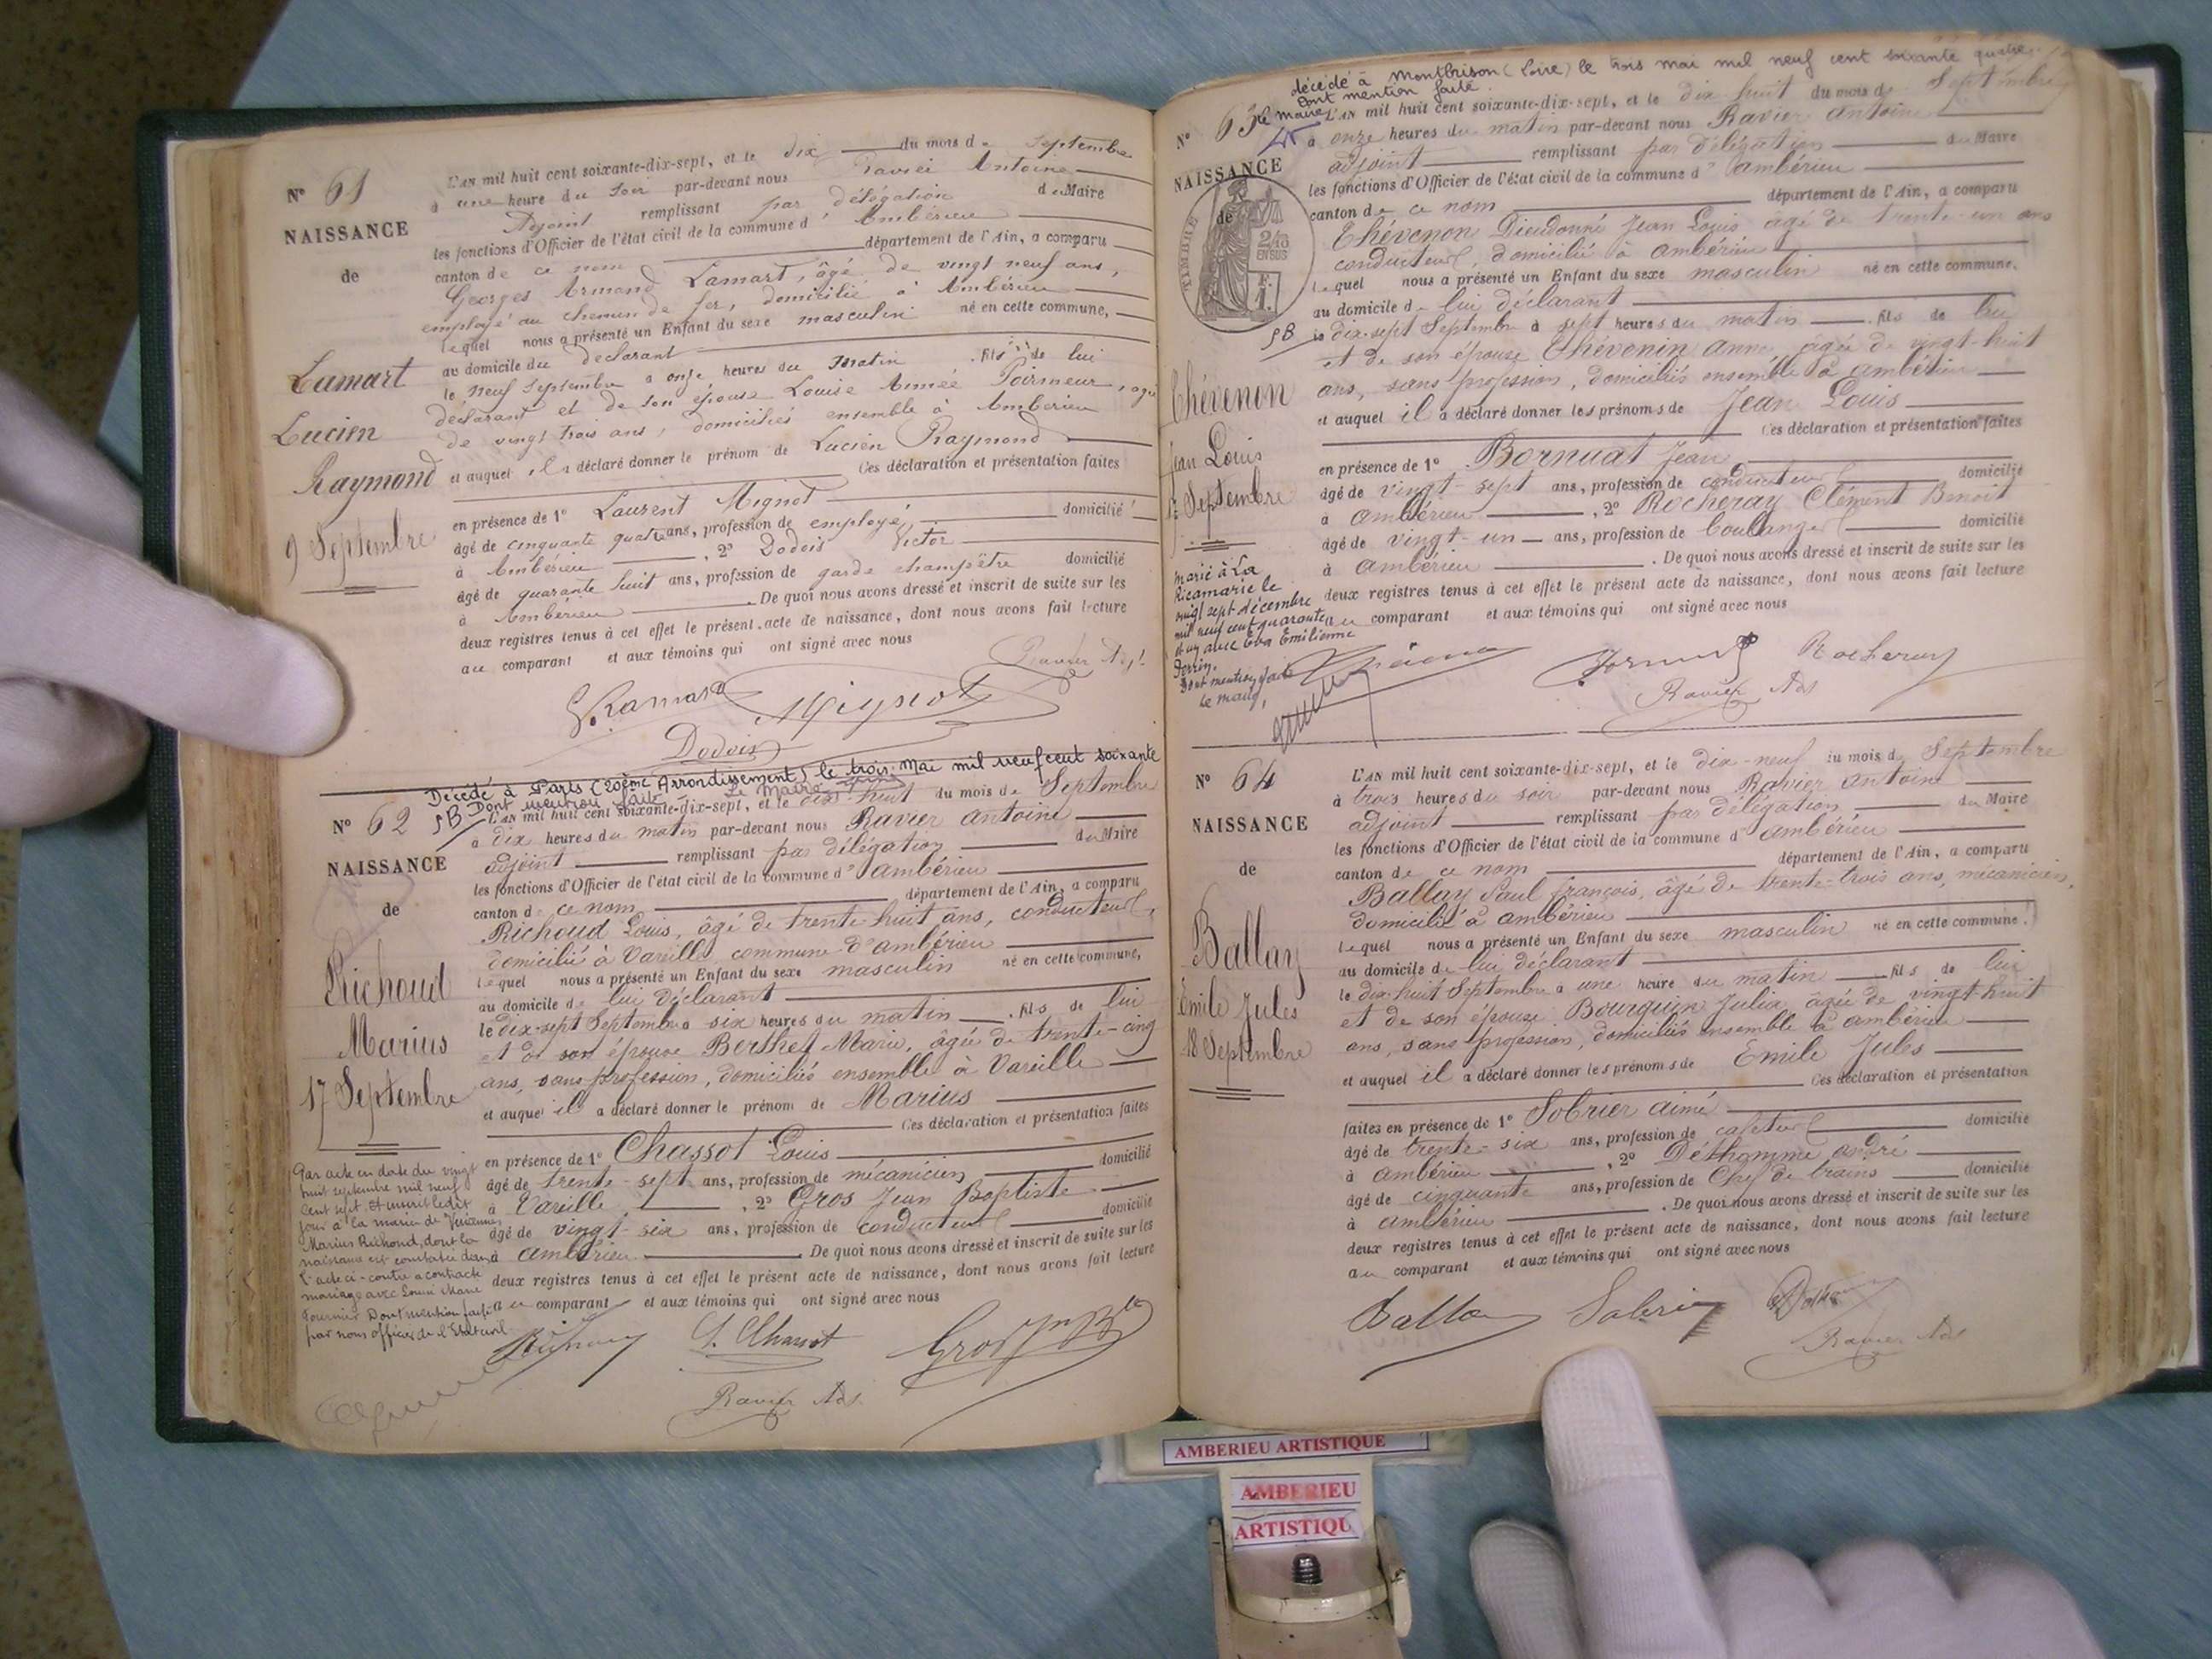 N° 61
NAISSANCE
de
Lamart
Lucien
Raymond
9 Septembre
L'AN mil huit cent soixante-dix-sept, et le dix du mois de Septembre
à une heure du soir par-devant nous Ravier Antoine
Adjoint remplissant par délégation du Maire
les fonctions d'Officier de l'état civil de la commune d'Ambérieu
canton de ce nom département de l'Ain, a comparu
Georges Armand Lamart, âgé de vingt neuf ans,
employé au chemin de fer, domicilié à Ambérieu
lequel nous a présenté un Enfant du sexe masculin né en cette commune,
au domicile du déclarant
le neuf Septembre à onze heures du matin fils de lui
déclarant et de son épouse Louise Aimée Poirmeur, agée
de vingt trois ans, domiciliés ensemble à Amberieu
et auquel il a déclaré donner le prénom de Lucien Raymond
Ces déclaration et présentation faites
en présence de 1° Laurent Mignot
âgé de cinquante quatre ans, profession de employé domicilié
à Ambérieu, 2° Dodois Victor
âgé de quarante huit ans, profession de garde champêtre domicilié
à Ambérieu. De quoi nous avons dressé et inscrit de suite sur les
deux registres tenus à cet effet le présent acte de naissance, dont nous avons fait lecture
au comparant et aux témoins qui ont signé avec nous
Ravier Adjt
G. Lamart Mignot
Dodois
Décédé à Paris (20ème Arrondissement) le trois Mai mil neuf cent soixante
Dont mention faite Le Maire
SB
N° 62
NAISSANCE
de
Richoud
Marius
17 Septembre
L'AN mil huit cent soixante-dix-sept, et le dix-huit du mois de Septembre
à dix heures du matin par-devant nous Ravier Antoine
adjoint remplissant par délégation du Maire
les fonctions d'Officier de l'état civil de la commune d'Ambérieu
canton de ce nom département de l'Ain, a comparu
Richoud Louis, âgé de trente-huit ans, conducteur,
domicilié à Vareille, commune d'ambérieu
lequel nous a présenté un Enfant du sexe masculin né en cette commune,
au domicile de lui déclarant
le dix-sept Septembre à six heures du matin, fils de lui
et de son épouse Berthet Marie, âgée de trente-cinq
ans, sans profession, domiciliés ensemble à Vareille
et auquel il a déclaré donner le prénom de Marius
Ces déclaration et présentation faites
en présence de 1° Chassot Louis
âgé de trente-sept ans, profession de mécanicien domicilié
à Vareille, 2° Gros Jean Baptiste
âgé de vingt-six ans, profession de conducteur domicilié
à ambérieu. De quoi nous avons dressé et inscrit de suite sur les
deux registres tenus à cet effet le présent acte de naissance, dont nous avons fait lecture
au comparant et aux témoins qui ont signé avec nous
Par acte en date du vingt
huit septembre mil neuf
cent sept et inscrit ledit
jour à la mairie de Vincennes
Marius Richoud, dont la
naissance est constatée dans
l'acte ci-contre a contracté
mariage avec Louise Marie
Fournier Dont mention faite
par nous officier de l'Etat civil
Richoud L. Chassot Gros Jn Bte
Ravier Adj.
décédé à Montbrison (Loire) le trois mai mil neuf cent soixante quatre
Dont mention faite.
le maire
N° 63
NAISSANCE
de
TIMBRE
2/10
EN SUS
F.
1.
SB
Thévenon
Jean Louis
17 Septembre
L'AN mil huit cent soixante-dix-sept, et le dix huit du mois de Septembre
à onze heures du matin par-devant nous Ravier Antoine
adjoint remplissant par délégation du Maire
les fonctions d'Officier de l'état civil de la commune d'ambérieu
canton de ce nom département de l'Ain, a comparu
Thévenon Dieudonné Jean Louis âgé de trente-un ans
conducteur, domicilié à ambérieu
lequel nous a présenté un Enfant du sexe masculin né en cette commune.
au domicile de lui déclarant
le dix-sept Septembre à sept heures du matin, fils de lui
et de son épouse Thévenin Anne agée de vingt-huit
ans, sans profession, domiciliés ensemble à ambérieu
et auquel il a déclaré donner les prénoms de Jean Louis
Ces déclaration et présentation faites
en présence de 1° Bornuat Jean
âgé de vingt-sept ans, profession de conducteur domicilié
à ambérieu, 2° Rocheray Clément Benoit
âgé de vingt-un ans, profession de boulanger domicilié
à ambérieu. De quoi nous avons dressé et inscrit de suite sur les
deux registres tenus à cet effet le présent acte de naissance, dont nous avons fait lecture
au comparant et aux témoins qui ont signé avec nous
marié à La
Ricamarie le
vingt sept décembre
mil neuf cent quarante
et un avec Eva Emilienne
Perrin.
Dont mention faite
Le maire,
Rocheray
Ravier Adj
N° 64
NAISSANCE
de
Ballay
Emile Jules
18 Septembre
L'AN mil huit cent soixante-dix-sept, et le dix-neuf du mois de Septembre
à trois heures du soir par-devant nous Ravier Antoine
adjoint remplissant par délégation du Maire
les fonctions d'Officier de l'état civil de la commune d'ambérieu
canton de ce nom département de l'Ain, a comparu
Ballay Paul françois, âgé de trente-trois ans, mécanicien,
domicilié à ambérieu
lequel nous a présenté un Enfant du sexe masculin né en cette commune.
au domicile de lui déclarant
le dix-huit Septembre à une heure du matin fils de lui
et de son épouse Bourquin Julia, âgée de vingt-huit
ans, sans profession, domiciliés ensemble à ambérieu
et auquel il a déclaré donner les prénoms de Emile Jules
Ces déclaration et présentation
faites en présence de 1° Sobrier aimé
âgé de trente-six ans, profession de cafetier domicilié
à ambérieu, 2° Déthomme andré
âgé de cinquante ans, profession de Chef de trains domicilié
à ambérieu. De quoi nous avons dressé et inscrit de suite sur les
deux registres tenus à cet effet le présent acte de naissance, dont nous avons fait lecture
au comparant et aux témoins qui ont signé avec nous
Ballay Sobrier
Ravier Adj
AMBERIEU ARTISTIQUE
AMBERIEU
ARTISTIQU